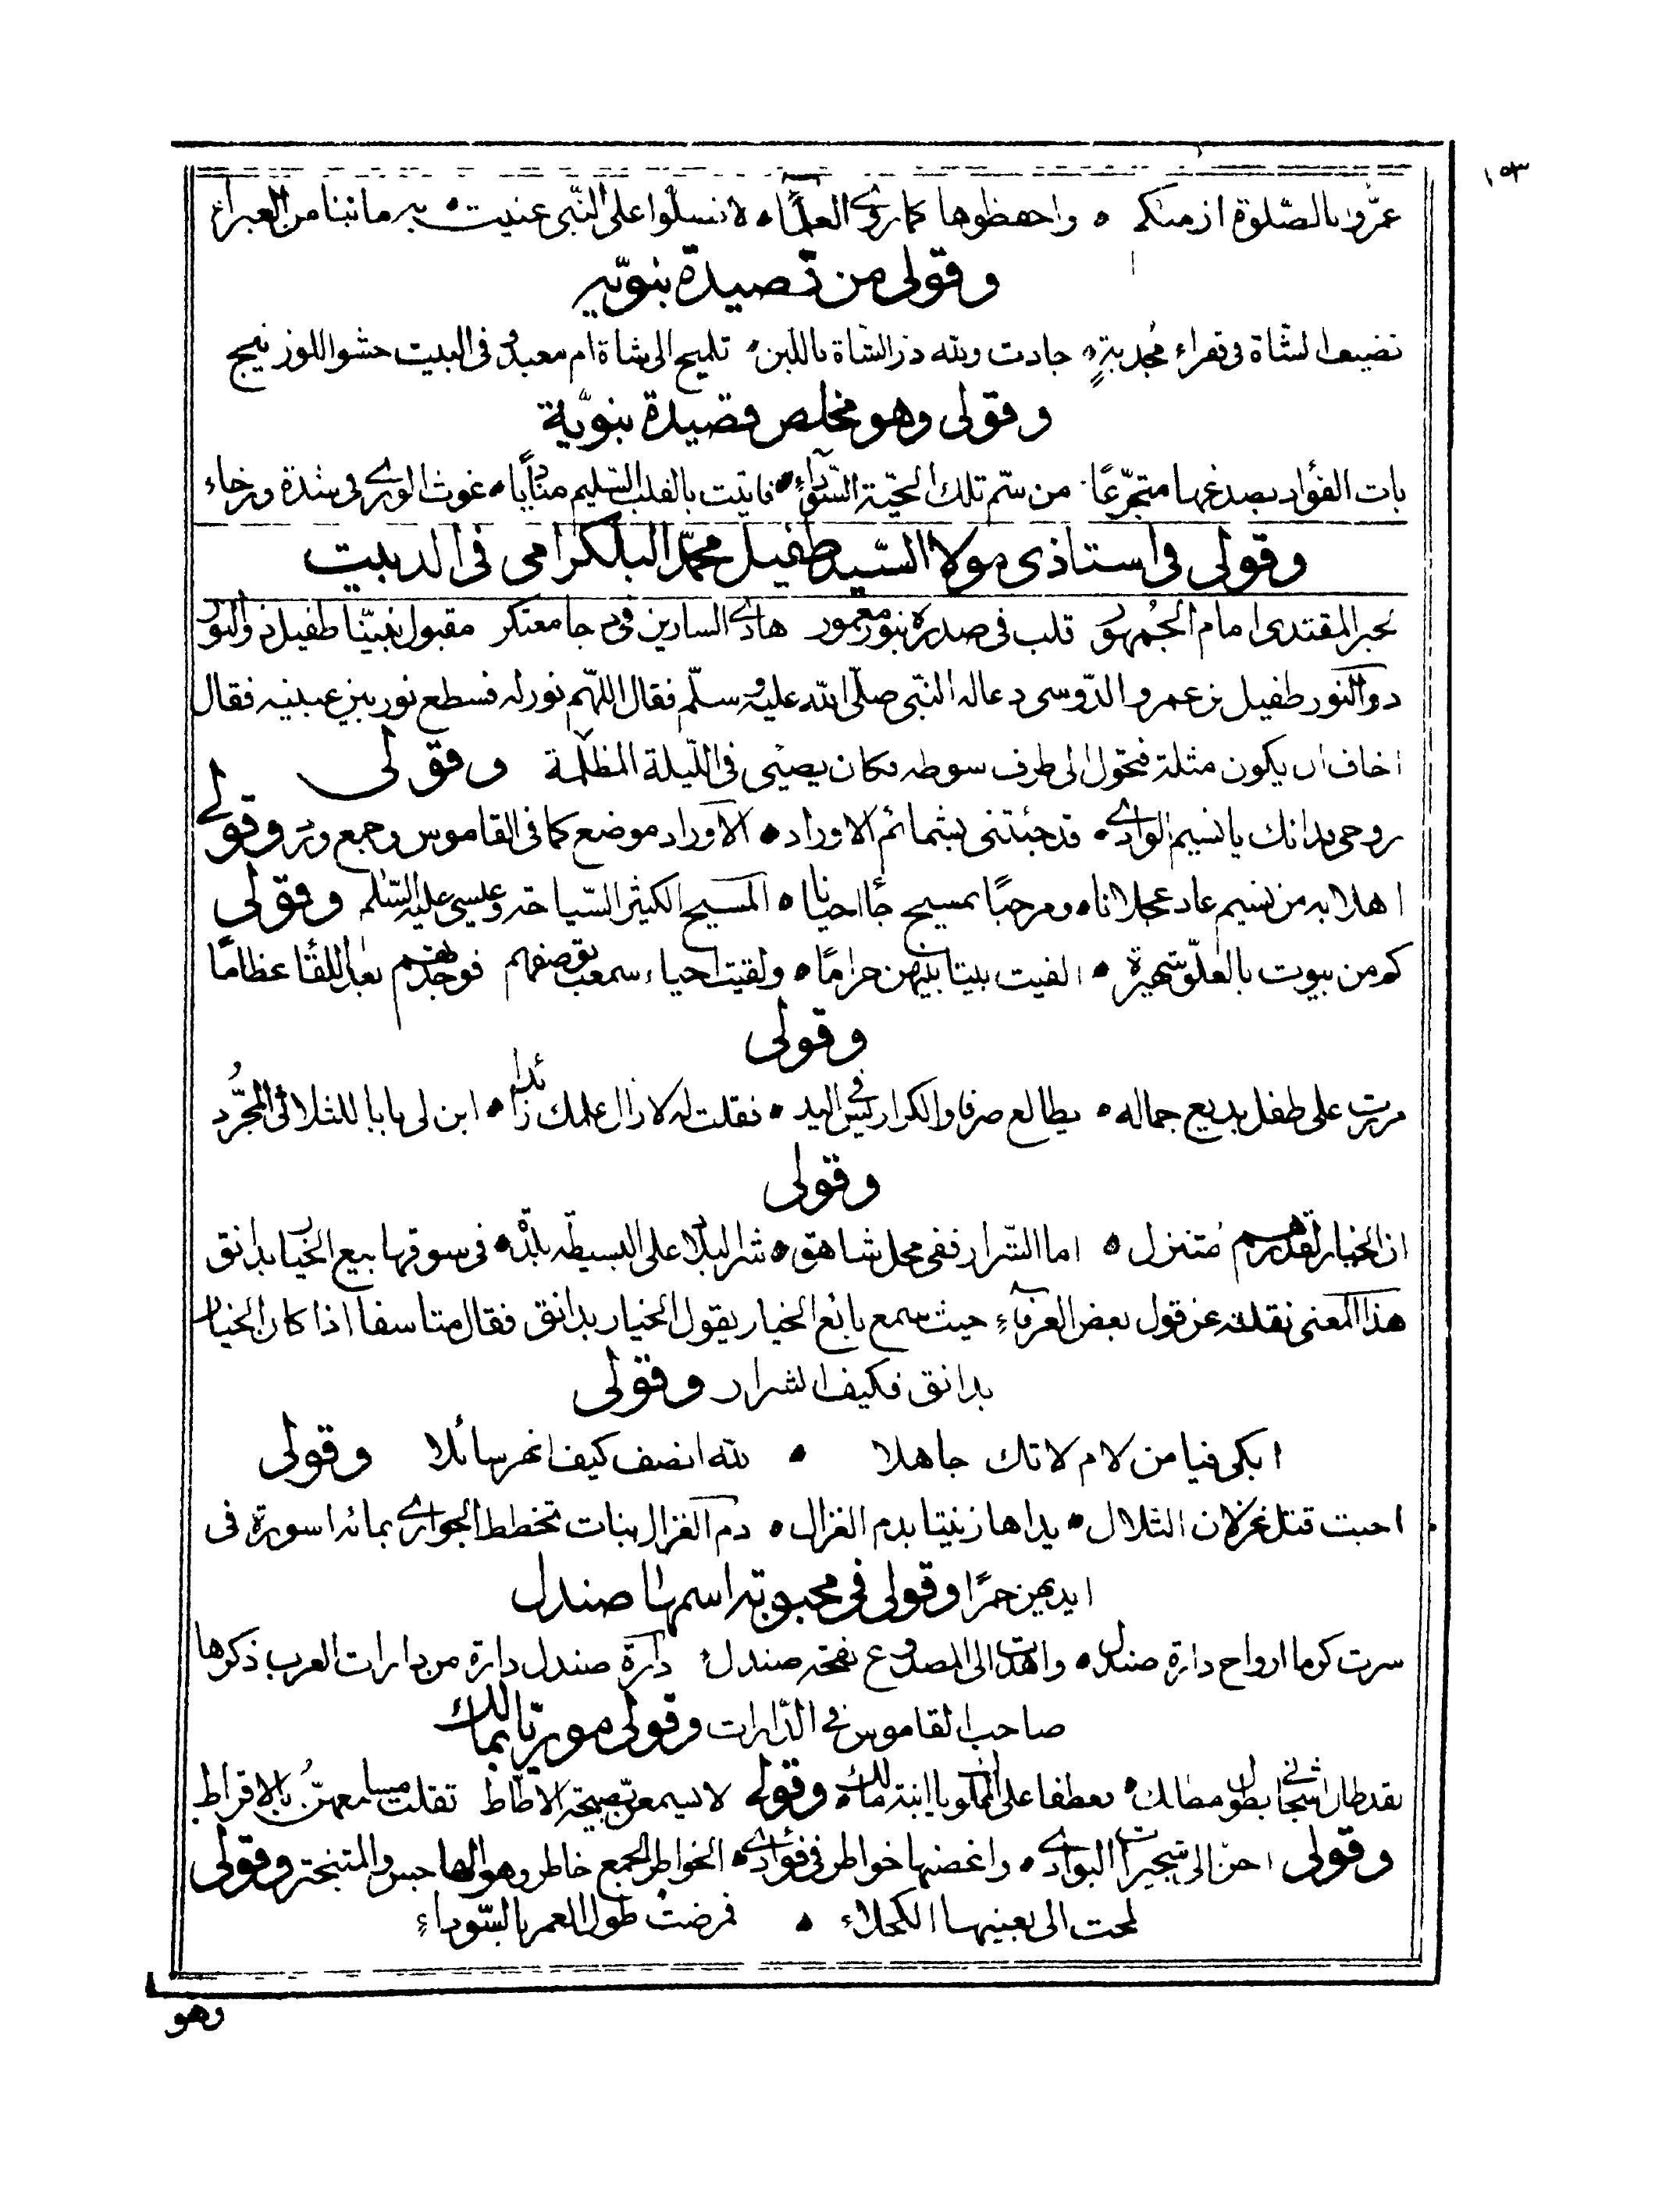 ١٥٣
عمّروا بالصّلوة ازمنكم • واحفظوها كما روى العلما • لا تسلّوا على النّبى عنيت • به مانبنا من العبراء
وقولى من قصيدة نبويّه
تضيف الشّاة فى قفراء مجدبةٍ • جادت ولله در الشّاة باللبن • تلميح الى شاة ام معبد وفى البيت حشو اللوزنيج
وقولى وهو مخلص قصيدة نبويّة
بات الفؤاد بصدغها متجرّعًا من سمّ تلك الحيّة السّوداء • فاتيت بالقلب السّليم مناديا • غوث الورى فى شدة ورخاء
وقولى فى استاذى مولانا السّيد طفيل محمّد البلكرامى فى الدبيت
نحبر المقتدى امام الجمهور قلب فى صدره بنور معمور هادى السارين فى دجا معتكر مقبول نبيّنا طفيل ذو النّور
ذو النور طفيل بن عمرو الدّوسى دعا له النبّى صلّى الله عليه وسلّم فقال اللهّم نور له فسطع نور بين عينيه فقال
اخاف ان يكون مثلة فتحول الى طرف سوطه فكان يضيئى فى اللّيلة المظلمة وقولى
روحى فدائك يا نسيم الوادى • قد جئتنى بشمائم الاوراد • الاوراد موضع كما فى القاموس وجمع ورد وقولى
اهلا به من نسيم عاد عجلانا • ومرحبًا بمسيح جأ احيانا • المسيح الكثير السّياحة وعيسى عليه السّلم وقولى
كم من بيوت بالعلوّ شهيرة • الفيت بيتا بينهن حرامًا • ولقيت احياء سمعت بوصفهم فوجدتهم بعد اللقأ عظامًا
وقولى
مررت على طفل بديع جماله • يطالع صرفا والكراريس فى اليد • فقلت له لا زال علمك زائدا • ابن لى بابا للثلاثى المجرّد
وقولى
ان الخيار لقدرهم متنزل • اما الشّرار ففى محل شاهق • شر البلاد على البسيطة بلدة • فى سوقها بيع الخيار بدانق
هذا المعنى نقلته عن قول بعض العرفاء حيث سمع بائع الخيار يقول الخيار بدانق فقال متاسفا اذا كان الخيار
بدانق فكيف الشرار وقولى
ابكى فيا من لام لا تك جاهلا • لله انصف كيف انهر سائلا وقولى
احبت قتل غزلان التلال • يداها زنيتا بدم الغزال • دم الغزال بنات تخطط الجوارى بمائه اسورة فى
ايديهن حمرًا وقولى فى محبوبته اسمها صندل
سرت كرما ارواح دارة صندل • واهدت الى المصدوع نفحة صندل دارة صندل دارة من دارات العرب ذكرها
صاحب القاموس فى الدّارات وقولى موريّا بمالك
لقد طال اشجانى بطول مطالك • تعطفا على المملوك يا ابنة مالك وقولى لا يسمعن نصيحة الاطاط ثقلت مسامعهنّ بالاقراط
وقولى احنّ الى شجيرات البوادى • واغصنها خواطر فى فؤادى • الخواطر الجمع خاطر وهو الهاجس والمتبختر وقولى
لمحت الى بعينها الكحلاء • فمرضت طول العمر بالسّوداء
وهو